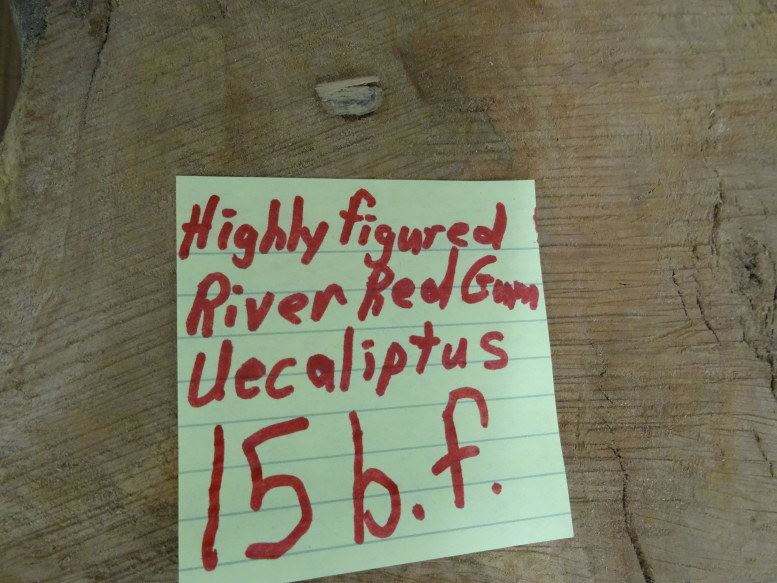 Highly figured
River Red Gum
Uecaliptus
15 b.f.